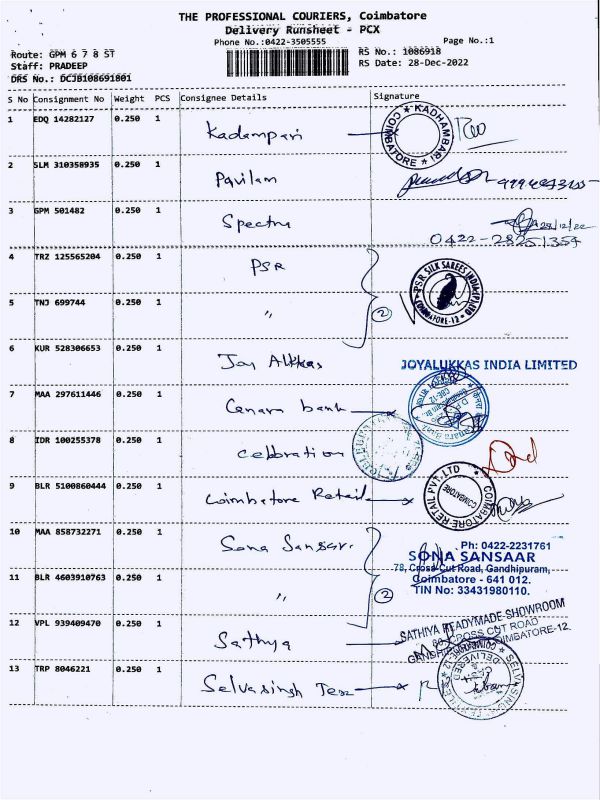 THE PROFESSIONAL COURIERS, Coimbatore
Delivery Runsheet - PCX
Phone No.:0422-3505555
Page No.:1
Route: GPM 6 7 8 ST
RS No.: 1086918
Staff: PRADEEP
RS Date: 28-Dec-2022
DRS No.: DCJB108691801
S No Consignment No Weight PCS Consignee Details Signature
1 EDQ 14282127 0.250 1 Kadampari
KADHAMBARI * COIMBATORE *
2 SLM 310358935 0.250 1 Pavilam
3 GPM 501482 0.250 1 Spectra
28/12/22
0422-28251354
4 TRZ 125565204 0.250 1 PSR
PSR SILK SAREES INDIA COIMBATORE-12
5 TNJ 699744 0.250 1 "
2
6 KUR 528306653 0.250 1 Joy Alkkas
JOYALUKKAS INDIA LIMITED
7 MAA 297611446 0.250 1 Canara bank
8 IDR 100255378 0.250 1 Celebration
9 BLR 5100860444 0.250 1 Coimbatore Retail
COIMBATORE RETAIL PVT. LTD
COIMBATORE
10 MAA 858732271 0.250 1 Sona Sansar.
Ph: 0422-2231761
SONA SANSAAR
78, Cross Cut Road, Gandhipuram,
Coimbatore - 641 012.
TIN No: 33431980110.
11 BLR 4603910763 0.250 1 "
2
12 VPL 939409470 0.250 1 Sathya
SATHIYA READYMADE SHOWROOM
CROSS CUT ROAD
COIMBATORE-12.
13 TRP 8046221 0.250 1 Selvasingh Tex
DELIVERED